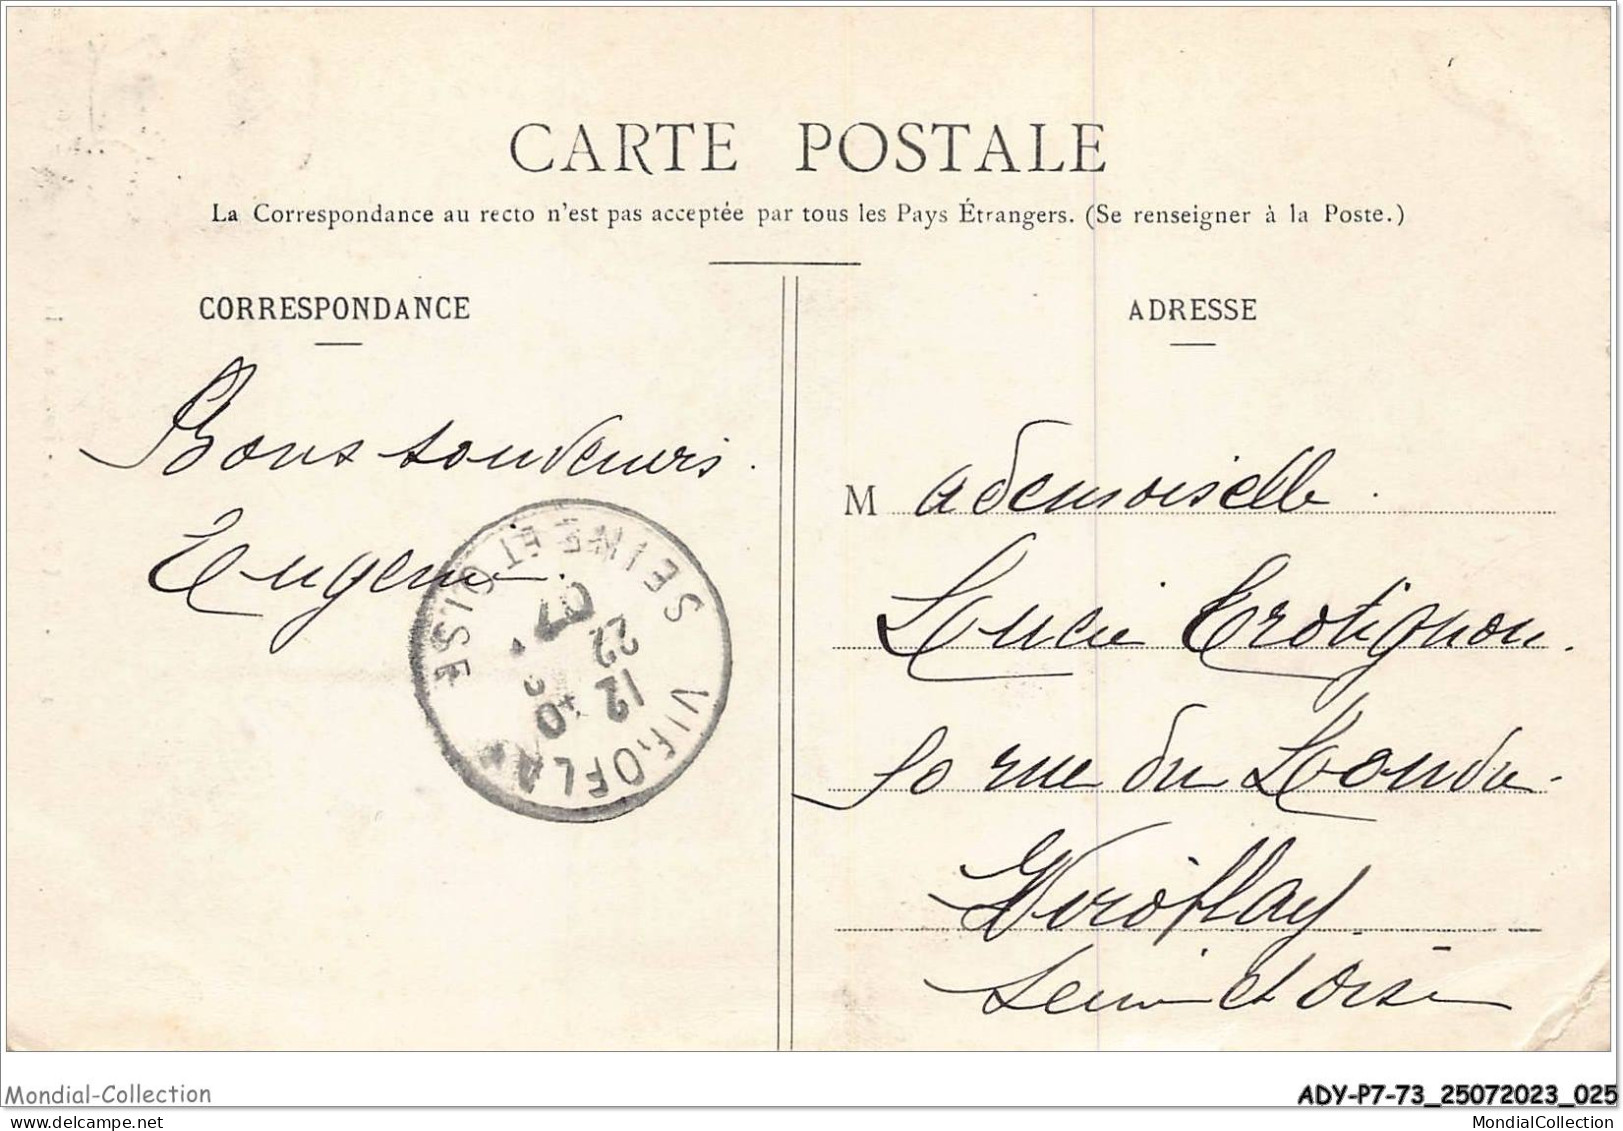 CARTE POSTALE
La Correspondance au recto n'est pas acceptée par tous les Pays Étrangers. (Se renseigner à la Poste.)
CORRESPONDANCE
Bons souvenirs.
Eugenie.
SEINE ET OISE
VIROFLAY
12
22
07
ADRESSE
Mademoiselle.
Lucie Trotignon.
rue du
Viroflay.
Seine et Oise
Mondial-Collection
ADY-P7-73_25072023_025
MondialCollection
MondialCollection